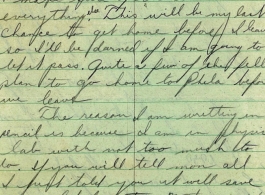 everything. This will be my last
chance to get home before I leave
so I'll be darned if I am going to
let it pass. Quite a few of the fell
plan to go home to Phila before
we leave
The reason I am writing in
pencil is because I am in physic
lab with not too much to
do. If you will tell mom all
I just told you it will save